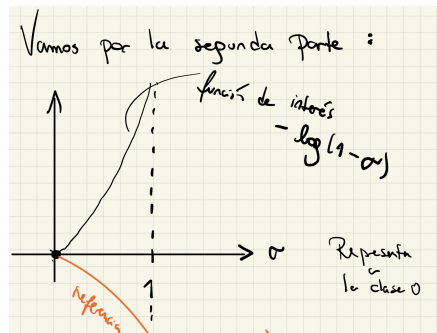 Vamos por la segunda parte :
función de interés
- log(1-σ)
σ
Representa
a
la clase 0
1
referencia